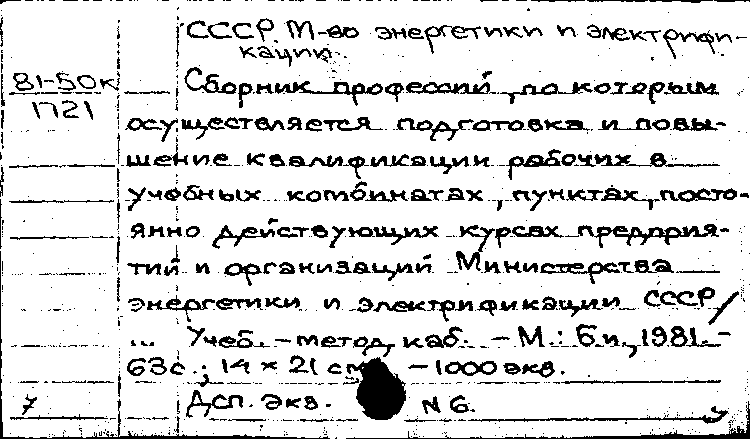 СССР. М-во энергетики и электрифи-
кации.
81-50к
1721
Сборник профессий, по которым
осуществляется подготовка и повы-
шение квалификации рабочих в
учебных комбинатах, пунктах, посто-
янно действующих курсах предприя-
тий и организаций Министерства
энергетики и электрификации СССР/
... Учеб.-метод. каб. - М.: Б.и., 1981. -
63с.; 14 × 21 см. - 1000 экз.
7 Дсп. Экз. N 6.